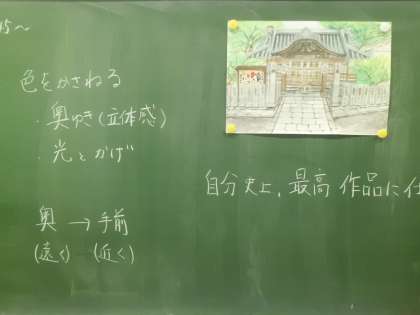 15～
色をかさねる
・奥ゆき(立体感)
・光とかげ
奥 → 手前
(遠く) (近く)
自分史上、最高作品に仕